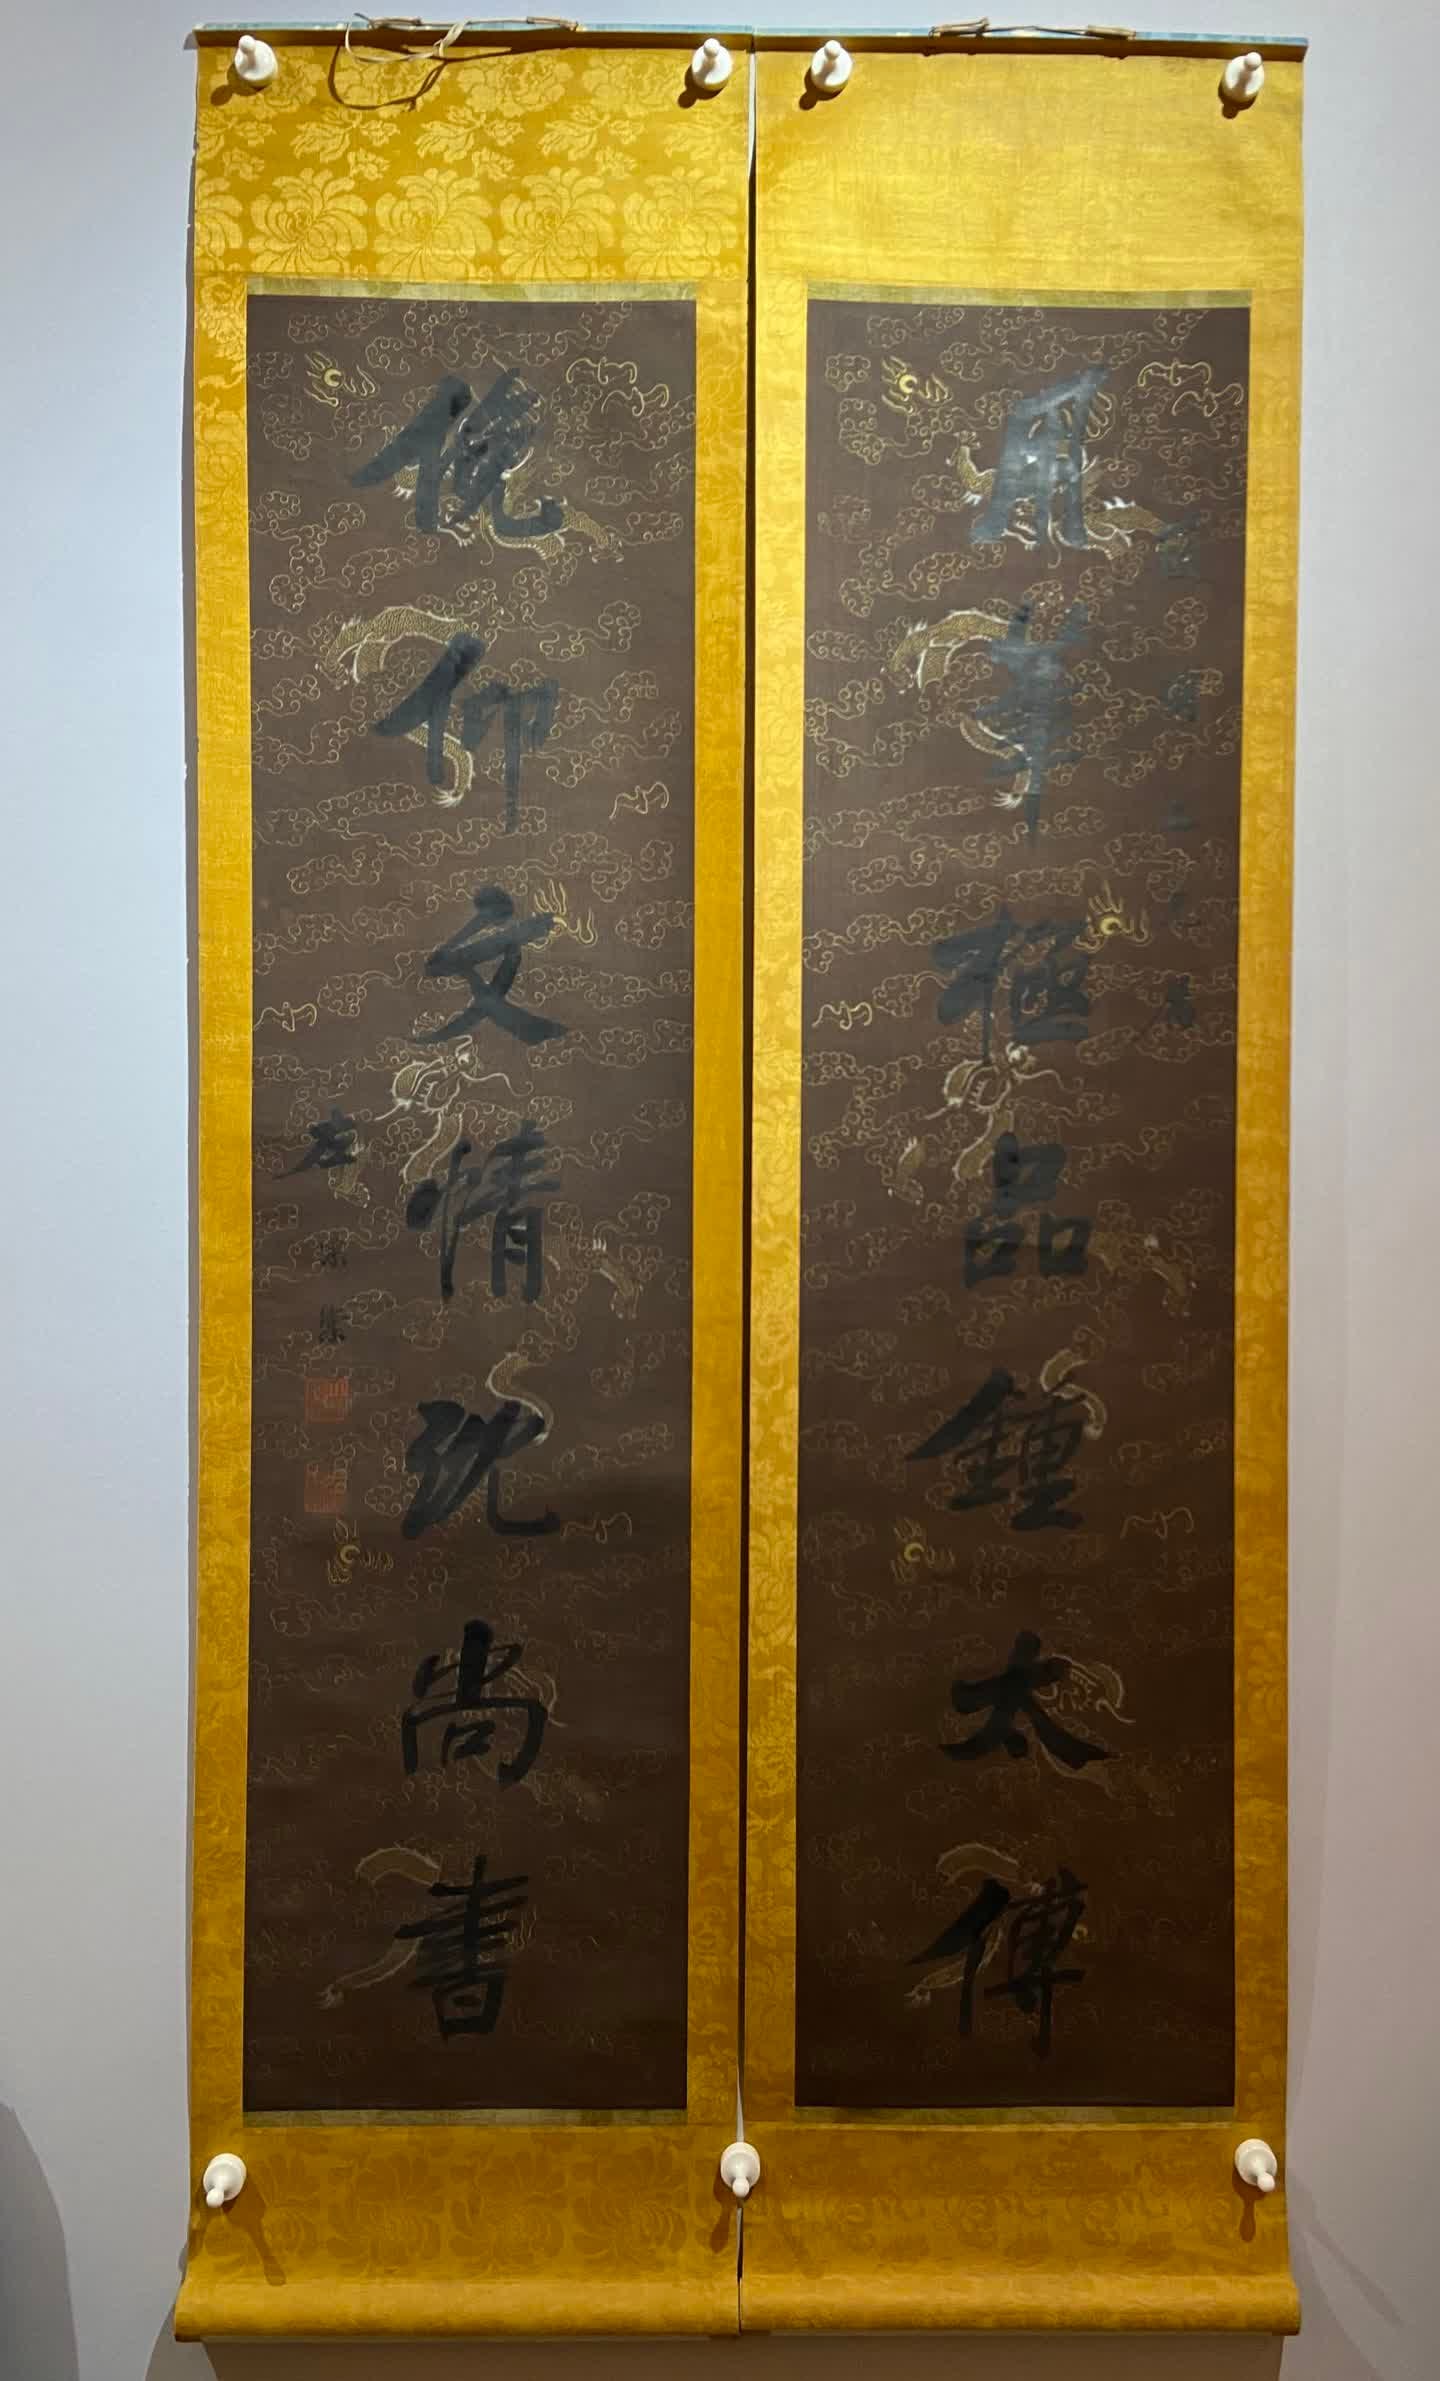 用筆極品鍾太傅
俛仰文情沈尚書
左宗棠